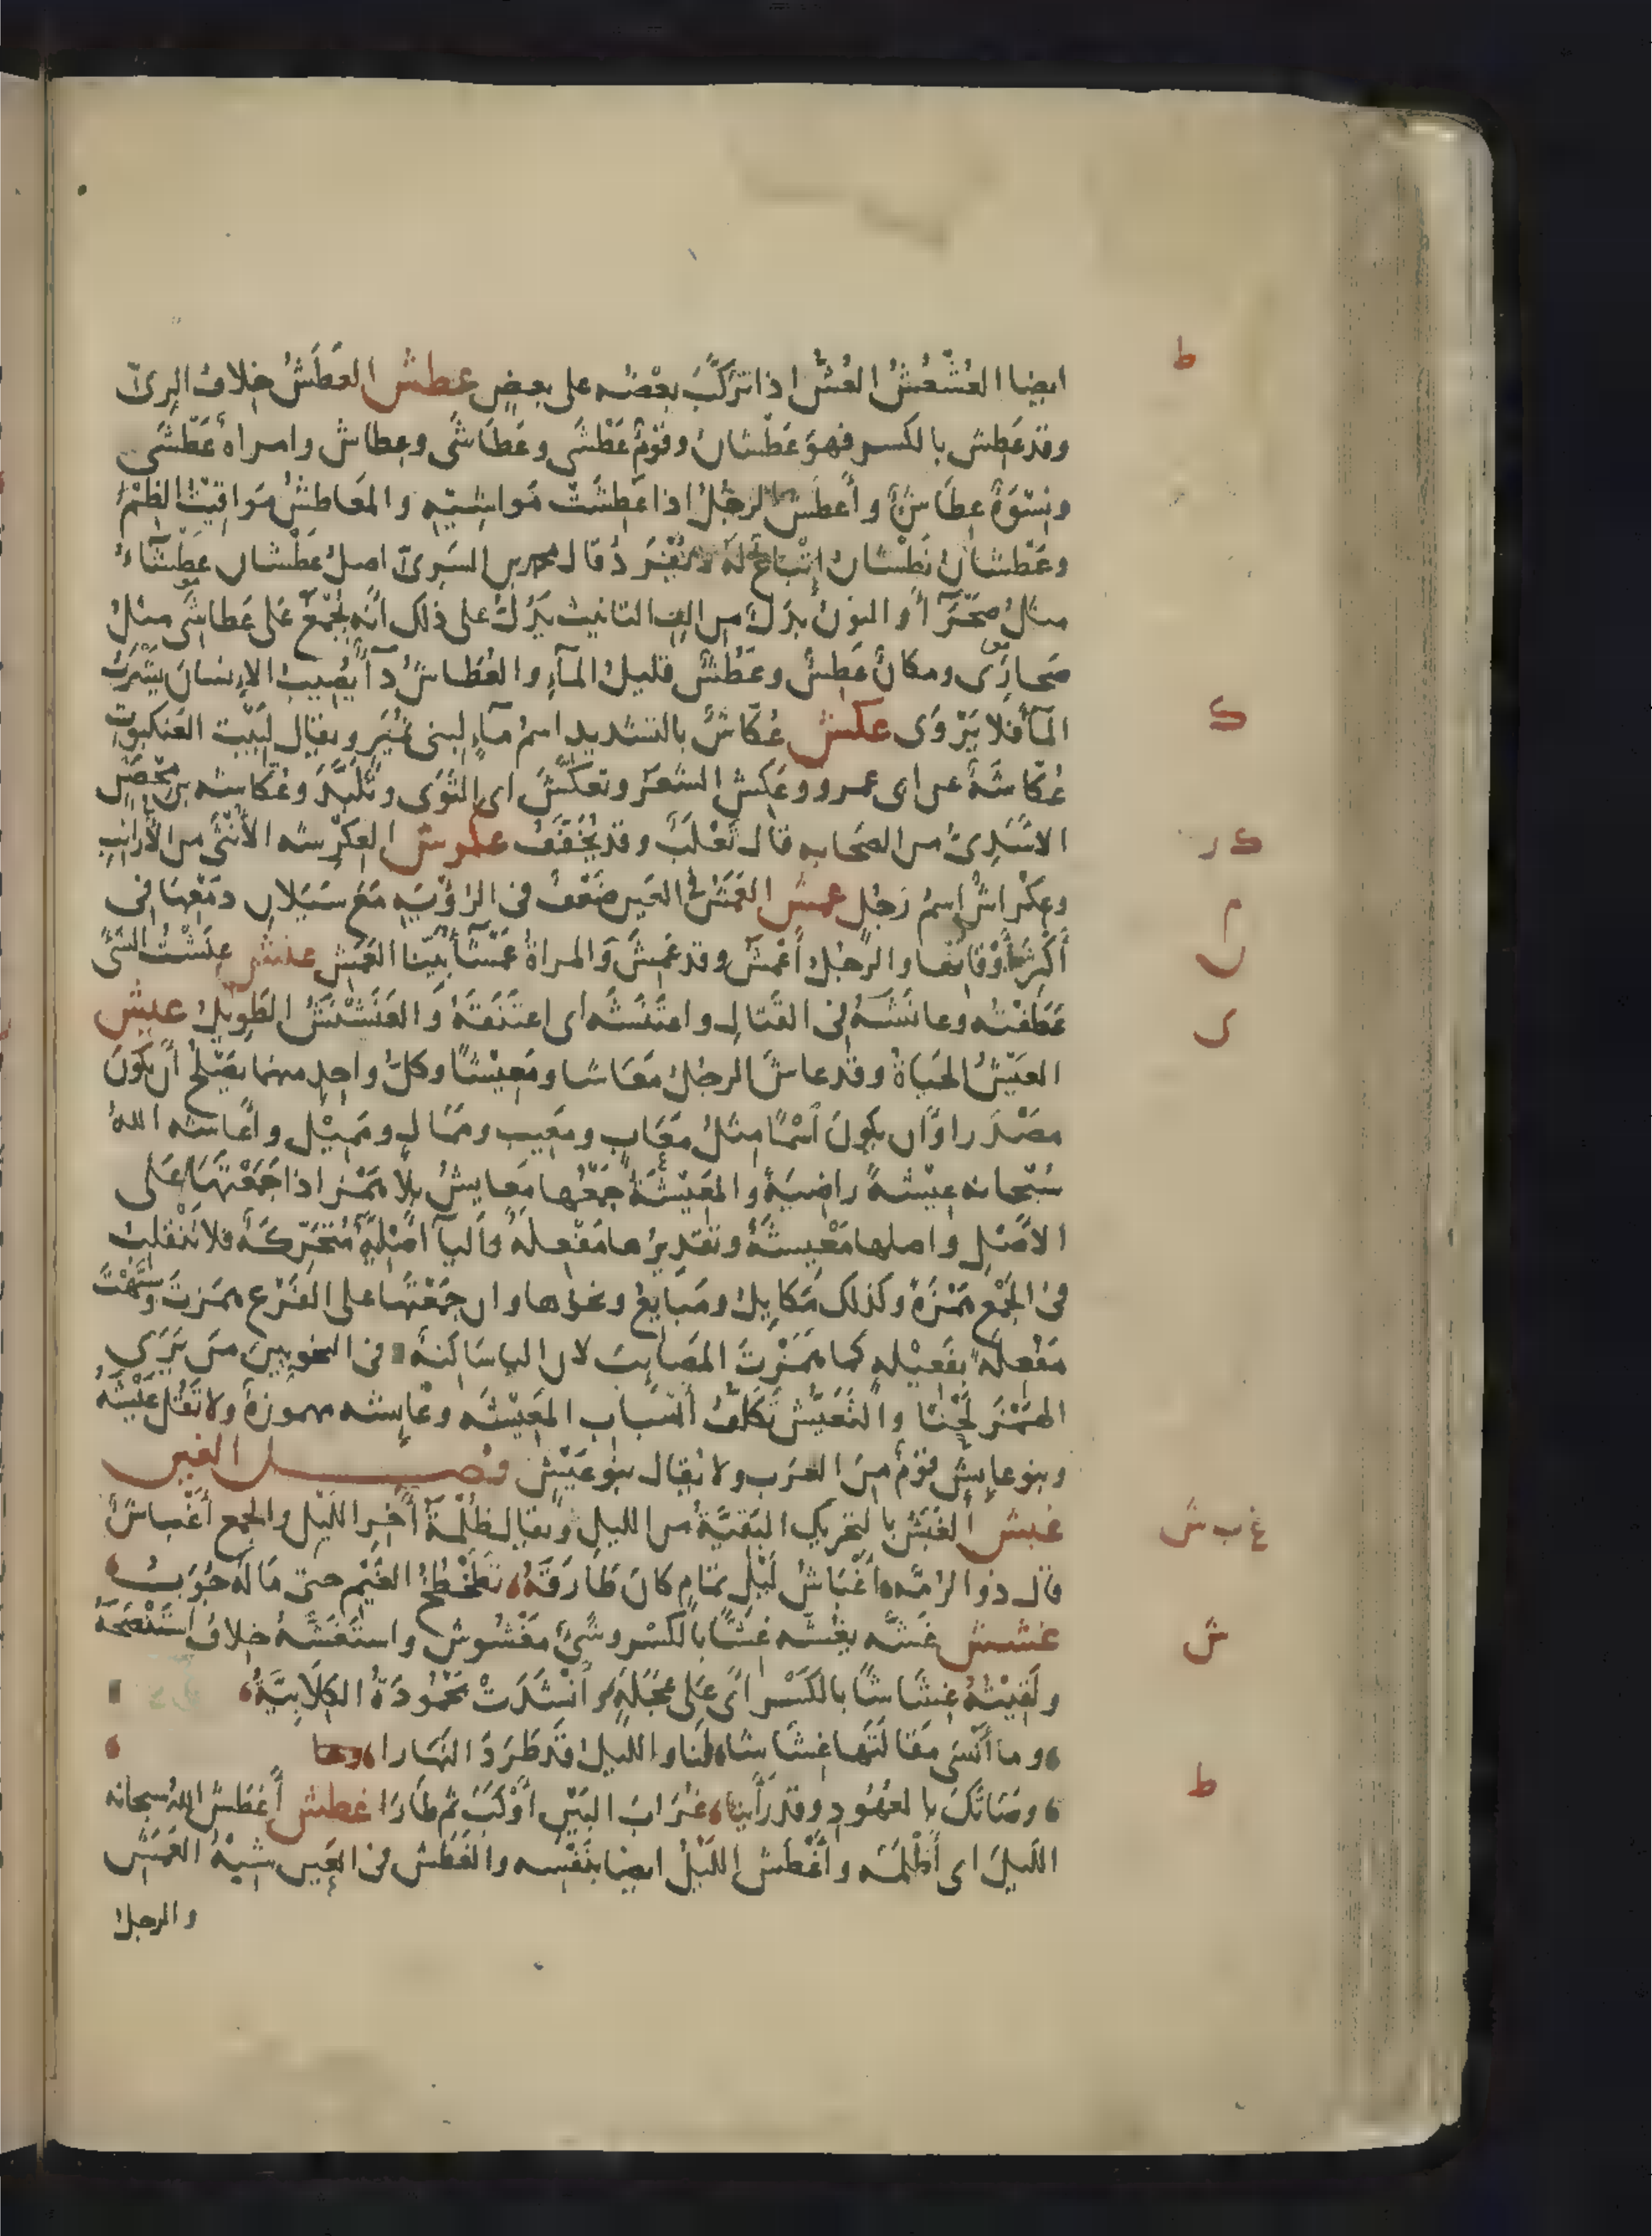 ط
ايضا العُشْعُشُ العُشُّ اذا تَرَكَّبَ بعْضُه على بعضٍ عطش العَطَشُ خِلافُ الرِىّ
وقد عَطِش بالكسر فهوَ عَطْشانُ وقَوْمٌ عَطْشَى وعَطَاشَى وعِطاش وامراةٌ عَطْشَى
ونِسْوَةٌ عِطَاشٌ وأَعطَشَ الرجُلُ اذا عَطِشَتْ مَواشِيَه والمَعاطشُ مَواقِيْتُ الظِمْءِ
وعَطْشانُ نَطْشانُ اِتْباعٌ لَهُ لا يُفْرَدُ قال محمد بن السَرِىّ اصلُ عَطْشان عَطْشَاءُ
مثلُ صَحْرَآءَ والنونُ بَدَلٌ من الفِ التانيث يَدُلُّ على ذلك انَّه يُجْمَعُ عَلى عَطاشَى مثلُ
صَحارَى ومكانٌ عَطِشٌ وعَطُشٌ قليلُ المآءِ والعُطَاشُ دآءٌ يُصِيبُ الاِنسانَ يَشْرَبُ
ك
المآءَ فلا يَرْوَى عكش عُكَّاشٌ بالتشديد اسمُ مآءٍ لبنى نُمَيْرٍ ويقال لِبَيْت العَنكبوتِ
عُكَّاشَةٌ عن ابى عمرو وعَكِشَ الشعَرُ وتعكَّشَ اى التَوَى وتَلَبَّدَ وعُكّاشه بن مِحْصَنٍ
ك ر
الاسَدِىُّ من الصَحابه قال ثَعْلَبٌ وقد يُخَفَّفُ عكرش العِكْرِشه الأُنْثَى من الأَرانِبِ
م
وعِكْراشٌ اِسمُ رَجُلٍ عمش العَمَشُ فى العَين ضَعْفٌ فى الرُؤْيَهِ مَعَ سَيَلانِ دمَعْها فى
ن
أَكْثَرِ أَوْقاتها والرجُلُ أَعْمَشُ وقد عَمِشَ وَالمراةُ عَمْشَآءُ بَيِّنا العَمَشِ عنش عنَشْتُ الشَىْءَ
عَطَفْتُه وعانَشَهُ فى القتالِ واعتَنَشَه اى اعتَنَقَهُ والعَنَشْنَشُ الطَوِيلُ عيش
ى
العَيْشُ الحَيَاةُ وقد عاشَ الرجُلُ مَعَاشا ومَعِيْشًا وكلُّ واحِدٍ منهما يَصْلُحُ أَن يَكُونَ
مصْدَرا واَن يَكونَ اسْمًا مِثْلُ مَعَابٍ ومَعِيب ومَمَالٍ ومَمِيْل وأَعاشه اللهُ
سُبْحانه عِيْشةً راضِيَةً والمَعِيْشَةُ جَمْعُها مَعايِشُ بلا هَمْز اذا جَمَعْتَها عَلى
الاَصْلِ واصلها مَعْيِشَةٌ وتَقدِيرُها مَفْعِلَةٌ واليآءُ اَصْليَّةٌ مُتَحَرِّكَةٌ فلا تَنْقلِبُ
فى الجَمْعِ هَمْزَةً وكذلك مَكايِلُ ومَبايِعُ ونحوُها وان جمَعْتَها على الفَرْعِ هَمَزتَ وشَبَّهْتَ
مَفْعِلَه بفَعِيْله كما هَمَزْتَ المَصَائِبَ لان الياء سَاكِنَةٌ فى النحويين مَن يَرَى
الهَمْزَ لَحْنًا والتَعَيُّش تَكَلُّفُ اَسبَاب المَعِيْشَه وعَائِشه مهموزةٌ ولا تَقُل عَيْشَةُ
وبنو عايش قوْمٌ مِنَ العَرَب ولا يُقال بنو عَيْشٍ فصل الغين
غ ب ش
غبش الغَبَشُ بالتحريك البَقيَّةُ من الليلِ ويقال ظُلْمَةُ آخِرِ اللَيْلِ والجمع أَغْباشٌ
قال ذو الرمّه أَغْبَاشُ لَيْلٍ تمامٍ كانَ طَارَقَهُ تَطَخْطُخُ الغَيْمِ حتى مَالَهُ جُوَبُ
ش
غشش غَشّه يغُشّه غِشًّا بالكسْر وشَىْءٌ مَغْشُوش واستَغَشَّهُ خلافُ استَنْصَحَهُ
ولَقِيْتُهُ غِشَاشًا بالكَسْرِ اى عَلَى عَجَلَةٍ وانْشَدَتْ مَحْمُودَةُ الكِلَابِيَّةُ
وما أَنْسَى مَقالَتَها غِشَاشا لَنا والليلُ قَد طَرَدَ النَهَارا
ط
وَصَاتَكَ بالعُهُودِ وقد رَأَينا غُرَابَ البَيْنِ أَوْكَبَ ثم طَارَا غطش أَغطَشَ اللهُ سبحانه
اللَيلَ اى أَظْلَمَه وأَغْطَش اللَيْلُ ايضا بنَفْسِه والغَطَش فى العَين شِبْهُ العَمَشِ
والرجلُ